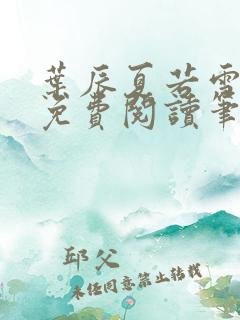 葉辰夏若雪
免費閱讀筆
邱父
未經同意禁止轉載